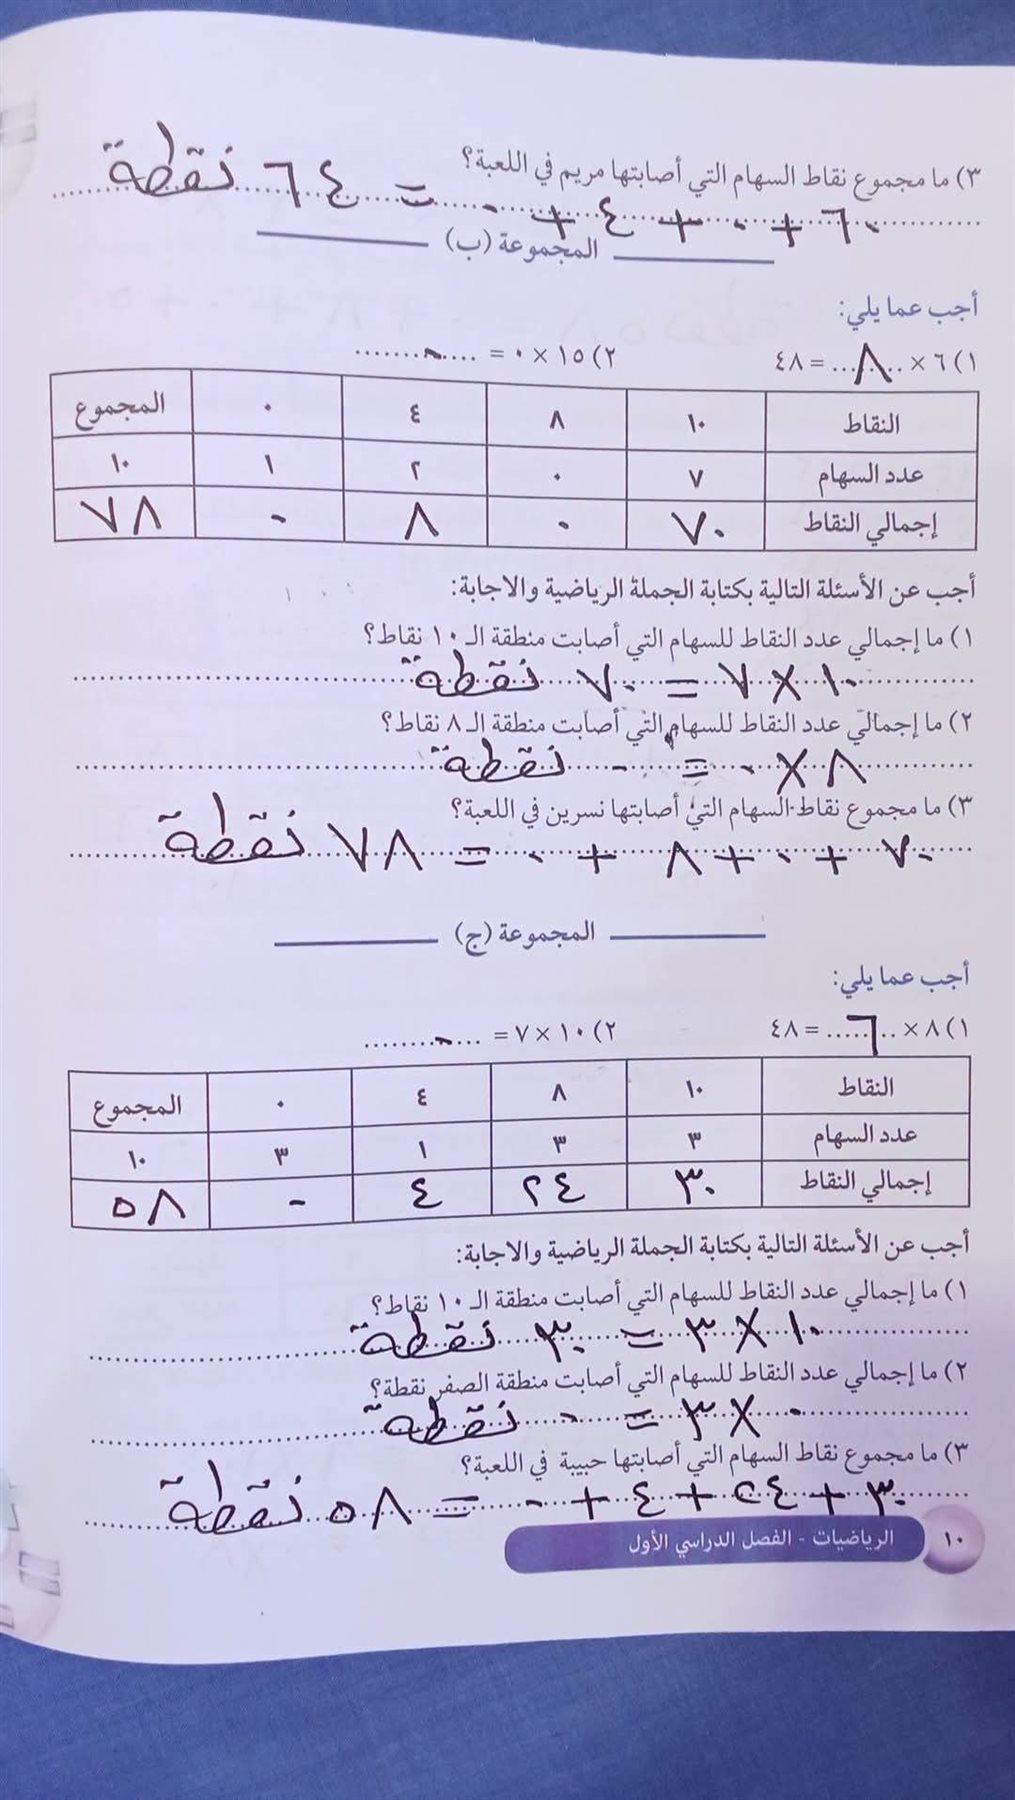 ٣) ما مجموع نقاط السهام التي أصابتها مريم في اللعبة؟
٦٠ + ٠ + ٤ + ٠ = ٦٤ نقطة
المجموعة (ب)
أجب عما يلي:
١) ٦ × ٨ = ٤٨ ٢) ١٥ × ٠ = ٠
النقاط ١٠ ٨ ٤ ٠ المجموع
عدد السهام ٧ ٠ ٢ ١ ١٠
إجمالي النقاط ٧٠ ٠ ٨ ٠ ٧٨
أجب عن الأسئلة التالية بكتابة الجملة الرياضية والاجابة:
١) ما إجمالي عدد النقاط للسهام التي أصابت منطقة الـ ١٠ نقاط؟
١٠ × ٧ = ٧٠ نقطة
٢) ما إجمالي عدد النقاط للسهام التي أصابت منطقة الـ ٨ نقاط؟
٨ × ٠ = ٠ نقطة
٣) ما مجموع نقاط السهام التي أصابتها نسرين في اللعبة؟
٧٠ + ٠ + ٨ + ٠ = ٧٨ نقطة
المجموعة (ج)
أجب عما يلي:
١) ٨ × ٦ = ٤٨ ٢) ١٠ × ٧ = ٠
النقاط ١٠ ٨ ٤ ٠ المجموع
عدد السهام ٣ ٣ ١ ٣ ١٠
إجمالي النقاط ٣٠ ٢٤ ٤ ٠ ٥٨
أجب عن الأسئلة التالية بكتابة الجملة الرياضية والاجابة:
١) ما إجمالي عدد النقاط للسهام التي أصابت منطقة الـ ١٠ نقاط؟
١٠ × ٣ = ٣٠ نقطة
٢) ما إجمالي عدد النقاط للسهام التي أصابت منطقة الصفر نقطة؟
٠ × ٣ = ٠ نقطة
٣) ما مجموع نقاط السهام التي أصابتها حبيبة في اللعبة؟
٣٠ + ٢٤ + ٤ + ٠ = ٥٨ نقطة
١٠ الرياضيات - الفصل الدراسي الأول